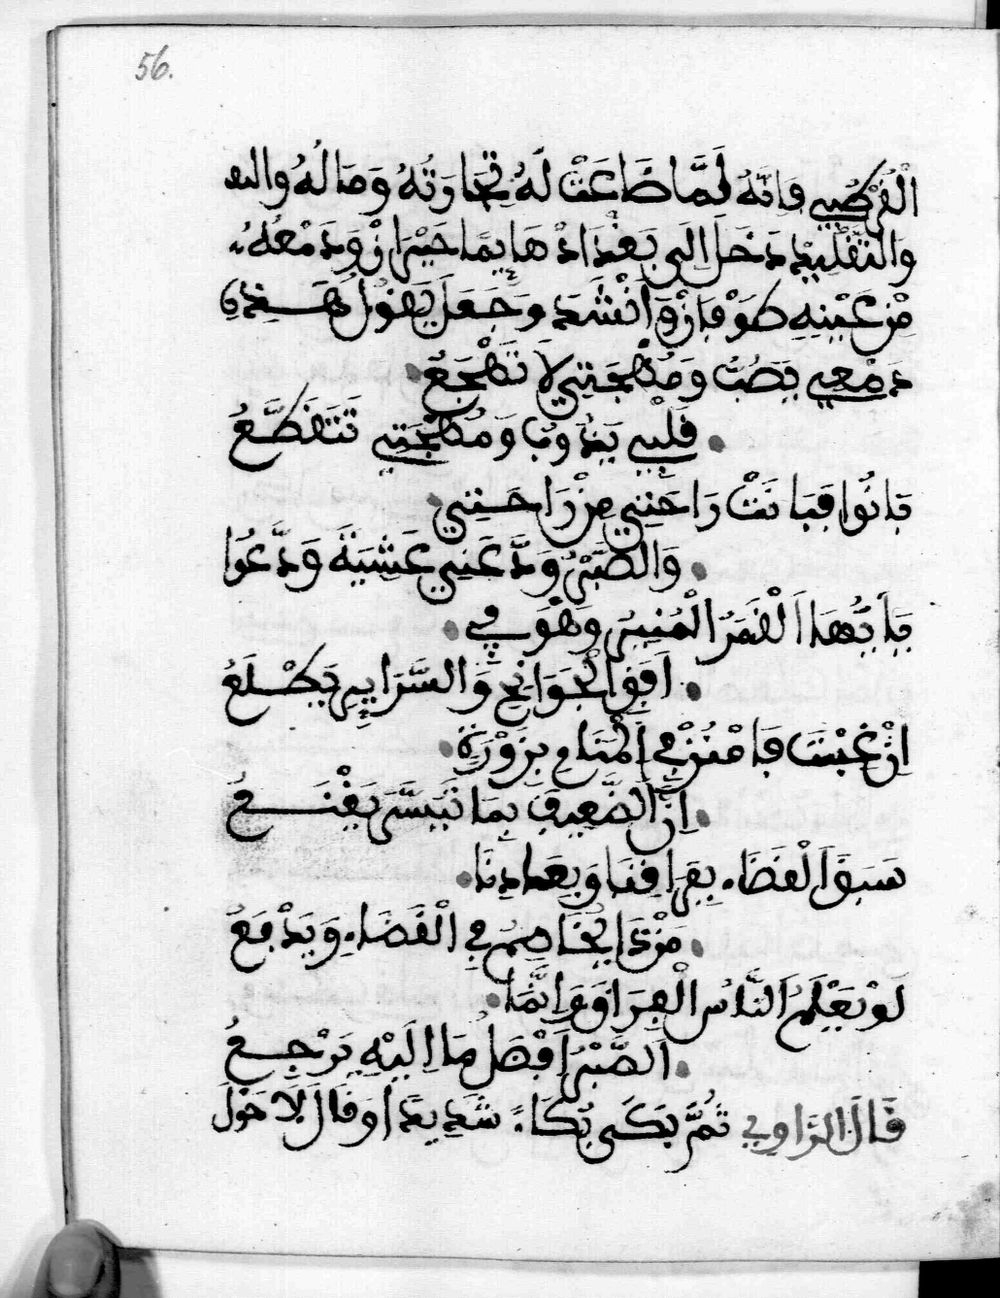 56.
الْقُرْطُبِي فَإِنَّهُ لَمَّا ضَاعَتْ لَهُ تِجَارَتُهُ وَمَالُهُ
وَالتَّقْلِيد دَخَلَ إِلَى بَغْدَادْ هَايِمًا حَيْرَانْ وَدَمْعُهُ
مِنْ عَيْنِهِ طَوْفَانْ وَأَنْشَدَ وَجَعَلَ يَقُولُ هَـذِهِ
دَمْعِي يَصُبُّ وَمُهْجَتِي لَا تَهْجَعُ
قَلْبِي يَذُوبُ وَمُهْجَتِي تَتَقَطَّعُ
بَانُوا فَبَانَتْ رَاحَتِي مِنْ رَاحَتِي
وَالصَّبْرُ وَدَّعَنِي عَشِيَّةَ وَدَّعُوا
يَا أَيُّهَا الْقَمَرُ الْمُنِيرُ وَهْوَ فِي
أُفْقِ الْجَوَانِحِ وَالسَّرَايِرِ يَطْلَعُ
إِنْ غِبْتَ فَامْنُنْ فِي الْمَنَامِ بِزَوْرَةٍ
إِنَّ الضَّعِيفَ بِمَا تَيَسَّرَ يَقْنَـعُ
سَبَقَ الْقَضَاء بِفِرَاقِنَا وَبِعَادِنَا
مَنْ ذَا يُخَاصِمُ فِي الْقَضَاءِ وَيَدْفَعُ
لَوْ يَعْلَمُ النَّاسُ الْفِرَاقَ وَإِنَّمَا
الصَّبْرُ أَفْضَلُ مَا إِلَيْهِ يَرْجِعُ
قَالَ الرَّاوِي ثُمَّ بَكَى بُكَاءً شَدِيدًا وَقَالَ لَا حَوْلَ